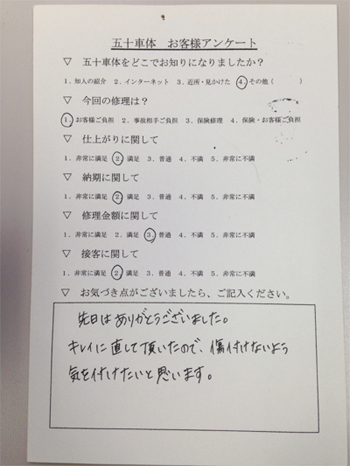 五十車体　お客様アンケート
▽　五十車体をどこでお知りになりましたか？
1．知人の紹介　2．インターネット　3．近所・見かけた　4．その他（　　　）
▽　今回の修理は？
1．お客様ご負担　2．事故相手ご負担　3．保険修理　4．保険・お客様ご負担
▽　仕上がりに関して
1．非常に満足　2．満足　3．普通　4．不満　5．非常に不満
▽　納期に関して
1．非常に満足　2．満足　3．普通　4．不満　5．非常に不満
▽　修理金額に関して
1．非常に満足　2．満足　3．普通　4．不満　5．非常に不満
▽　接客に関して
1．非常に満足　2．満足　3．普通　4．不満　5．非常に不満
▽　お気づき点がございましたら、ご記入ください。
先日はありがとうございました。
キレイに直して頂いたので、傷付けないよう
気を付けたいと思います。